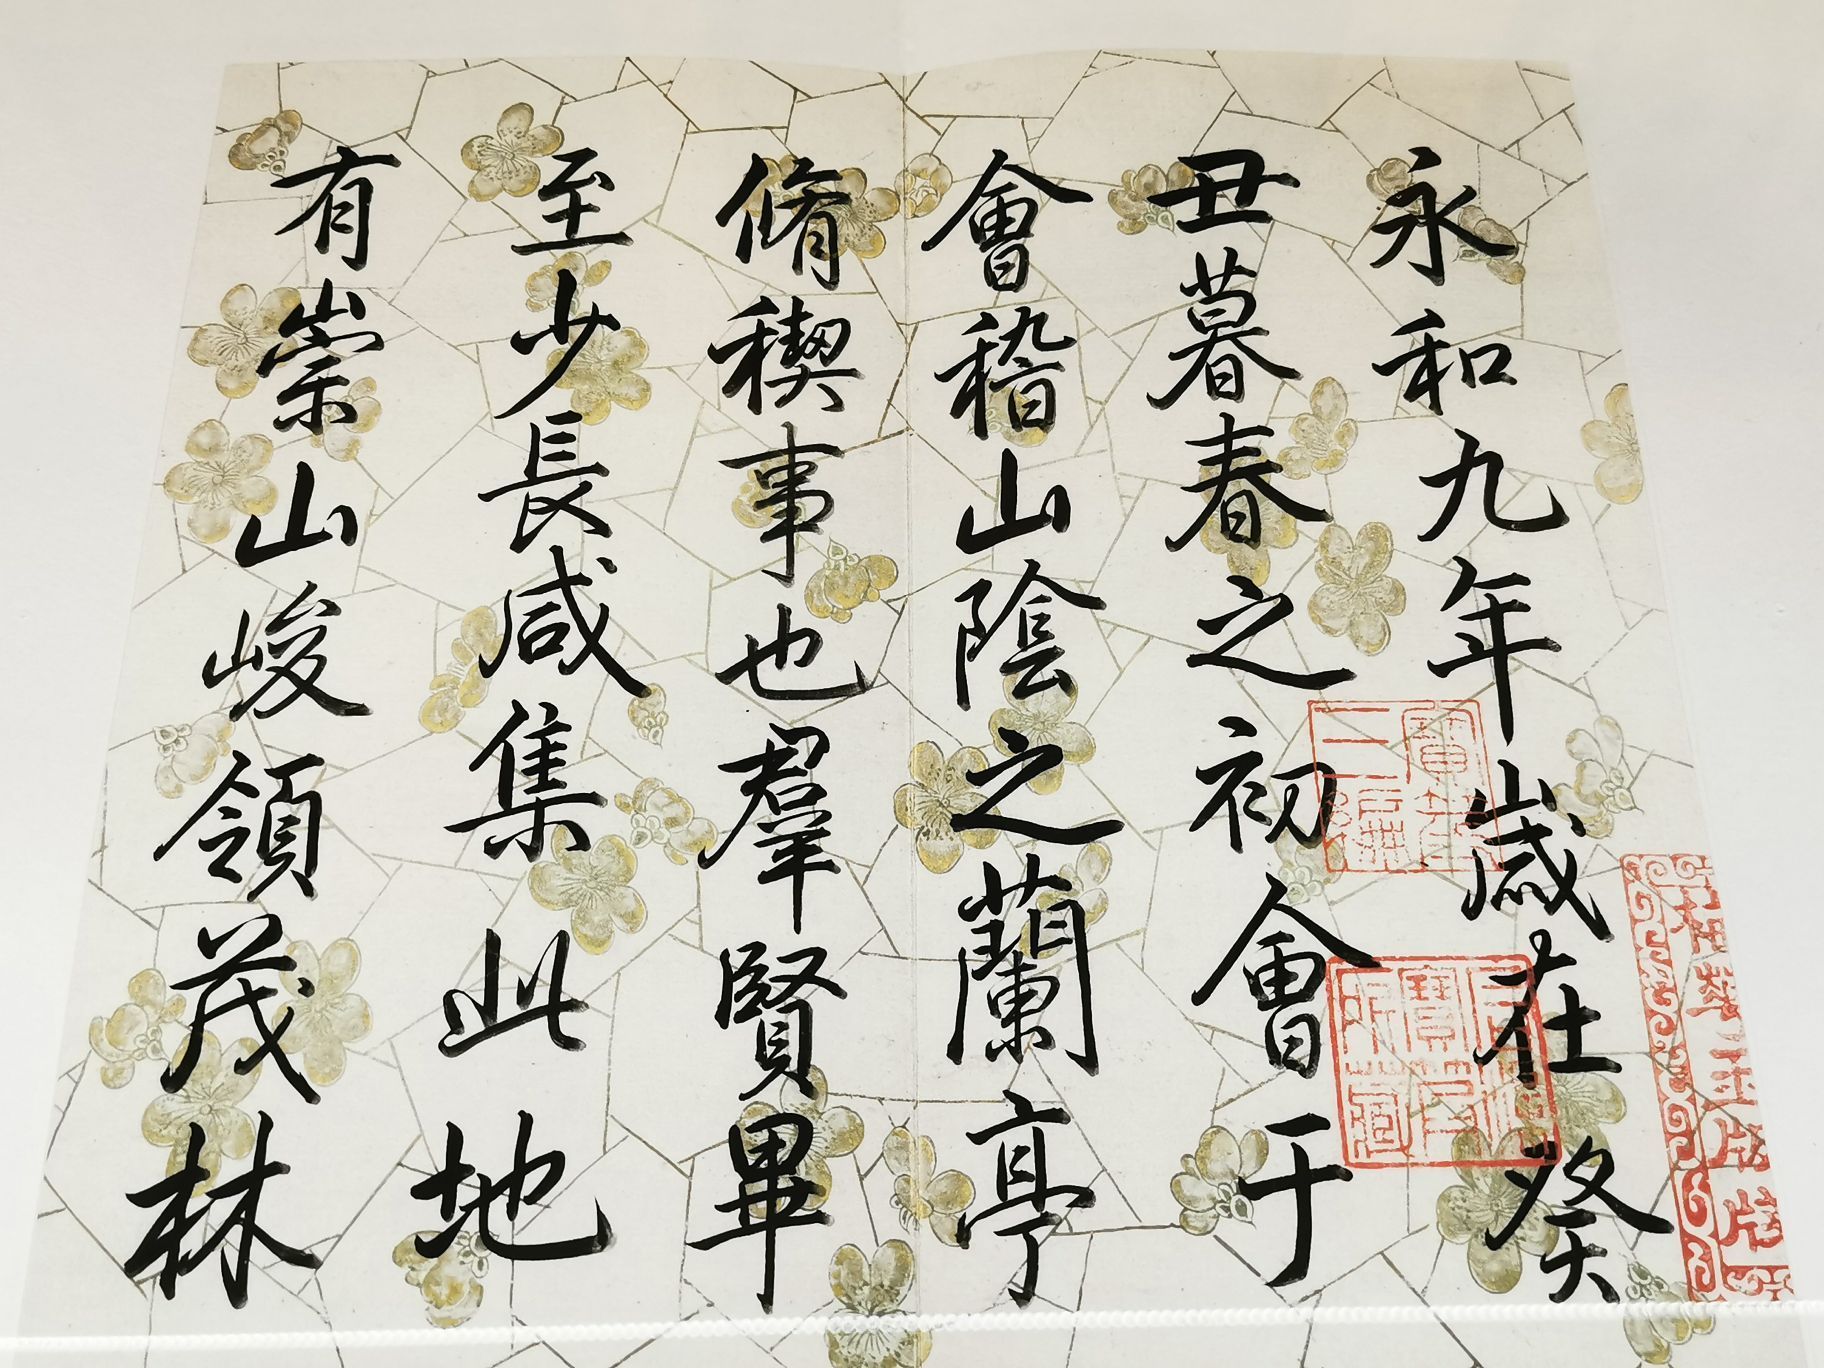 永和九年歲在癸
丑暮春之初會于
會稽山陰之蘭亭
脩稧事也羣賢畢
至少長咸集此地
有崇山峻領茂林